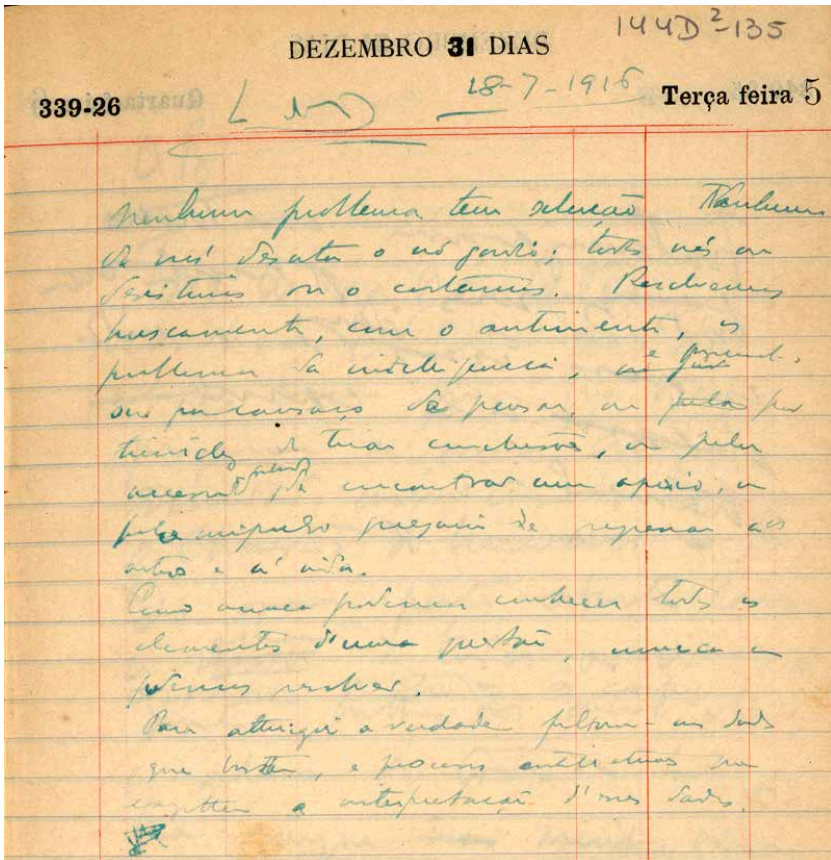 144D²-135
DEZEMBRO 31 DIAS
339-26 L. do D. 18-7-1916 Terça feira 5
Nenhum problema tem solução Nenhum
de nós desata o nó gordio; todos nós ou
desistimos ou o cortamos. Resolvemos
bruscamente, com o sentimento, os
problemas da intelligencia, e fazemol-
o ou por cansaço de pensar, ou por
timidez de tirar conclusões, ou pela
necessidade absurda de encontrar um apoio, ou
pelo impulso gregario de regressar aos
outros e á vida.
Como nunca podemos conhecer todos os
elementos d'uma questão, nunca a
podemos resolver.
Para attingir a verdade faltam-nos dados
que bastem, e processos intellectuaes que
exgottem a interpretação d'esses dados.